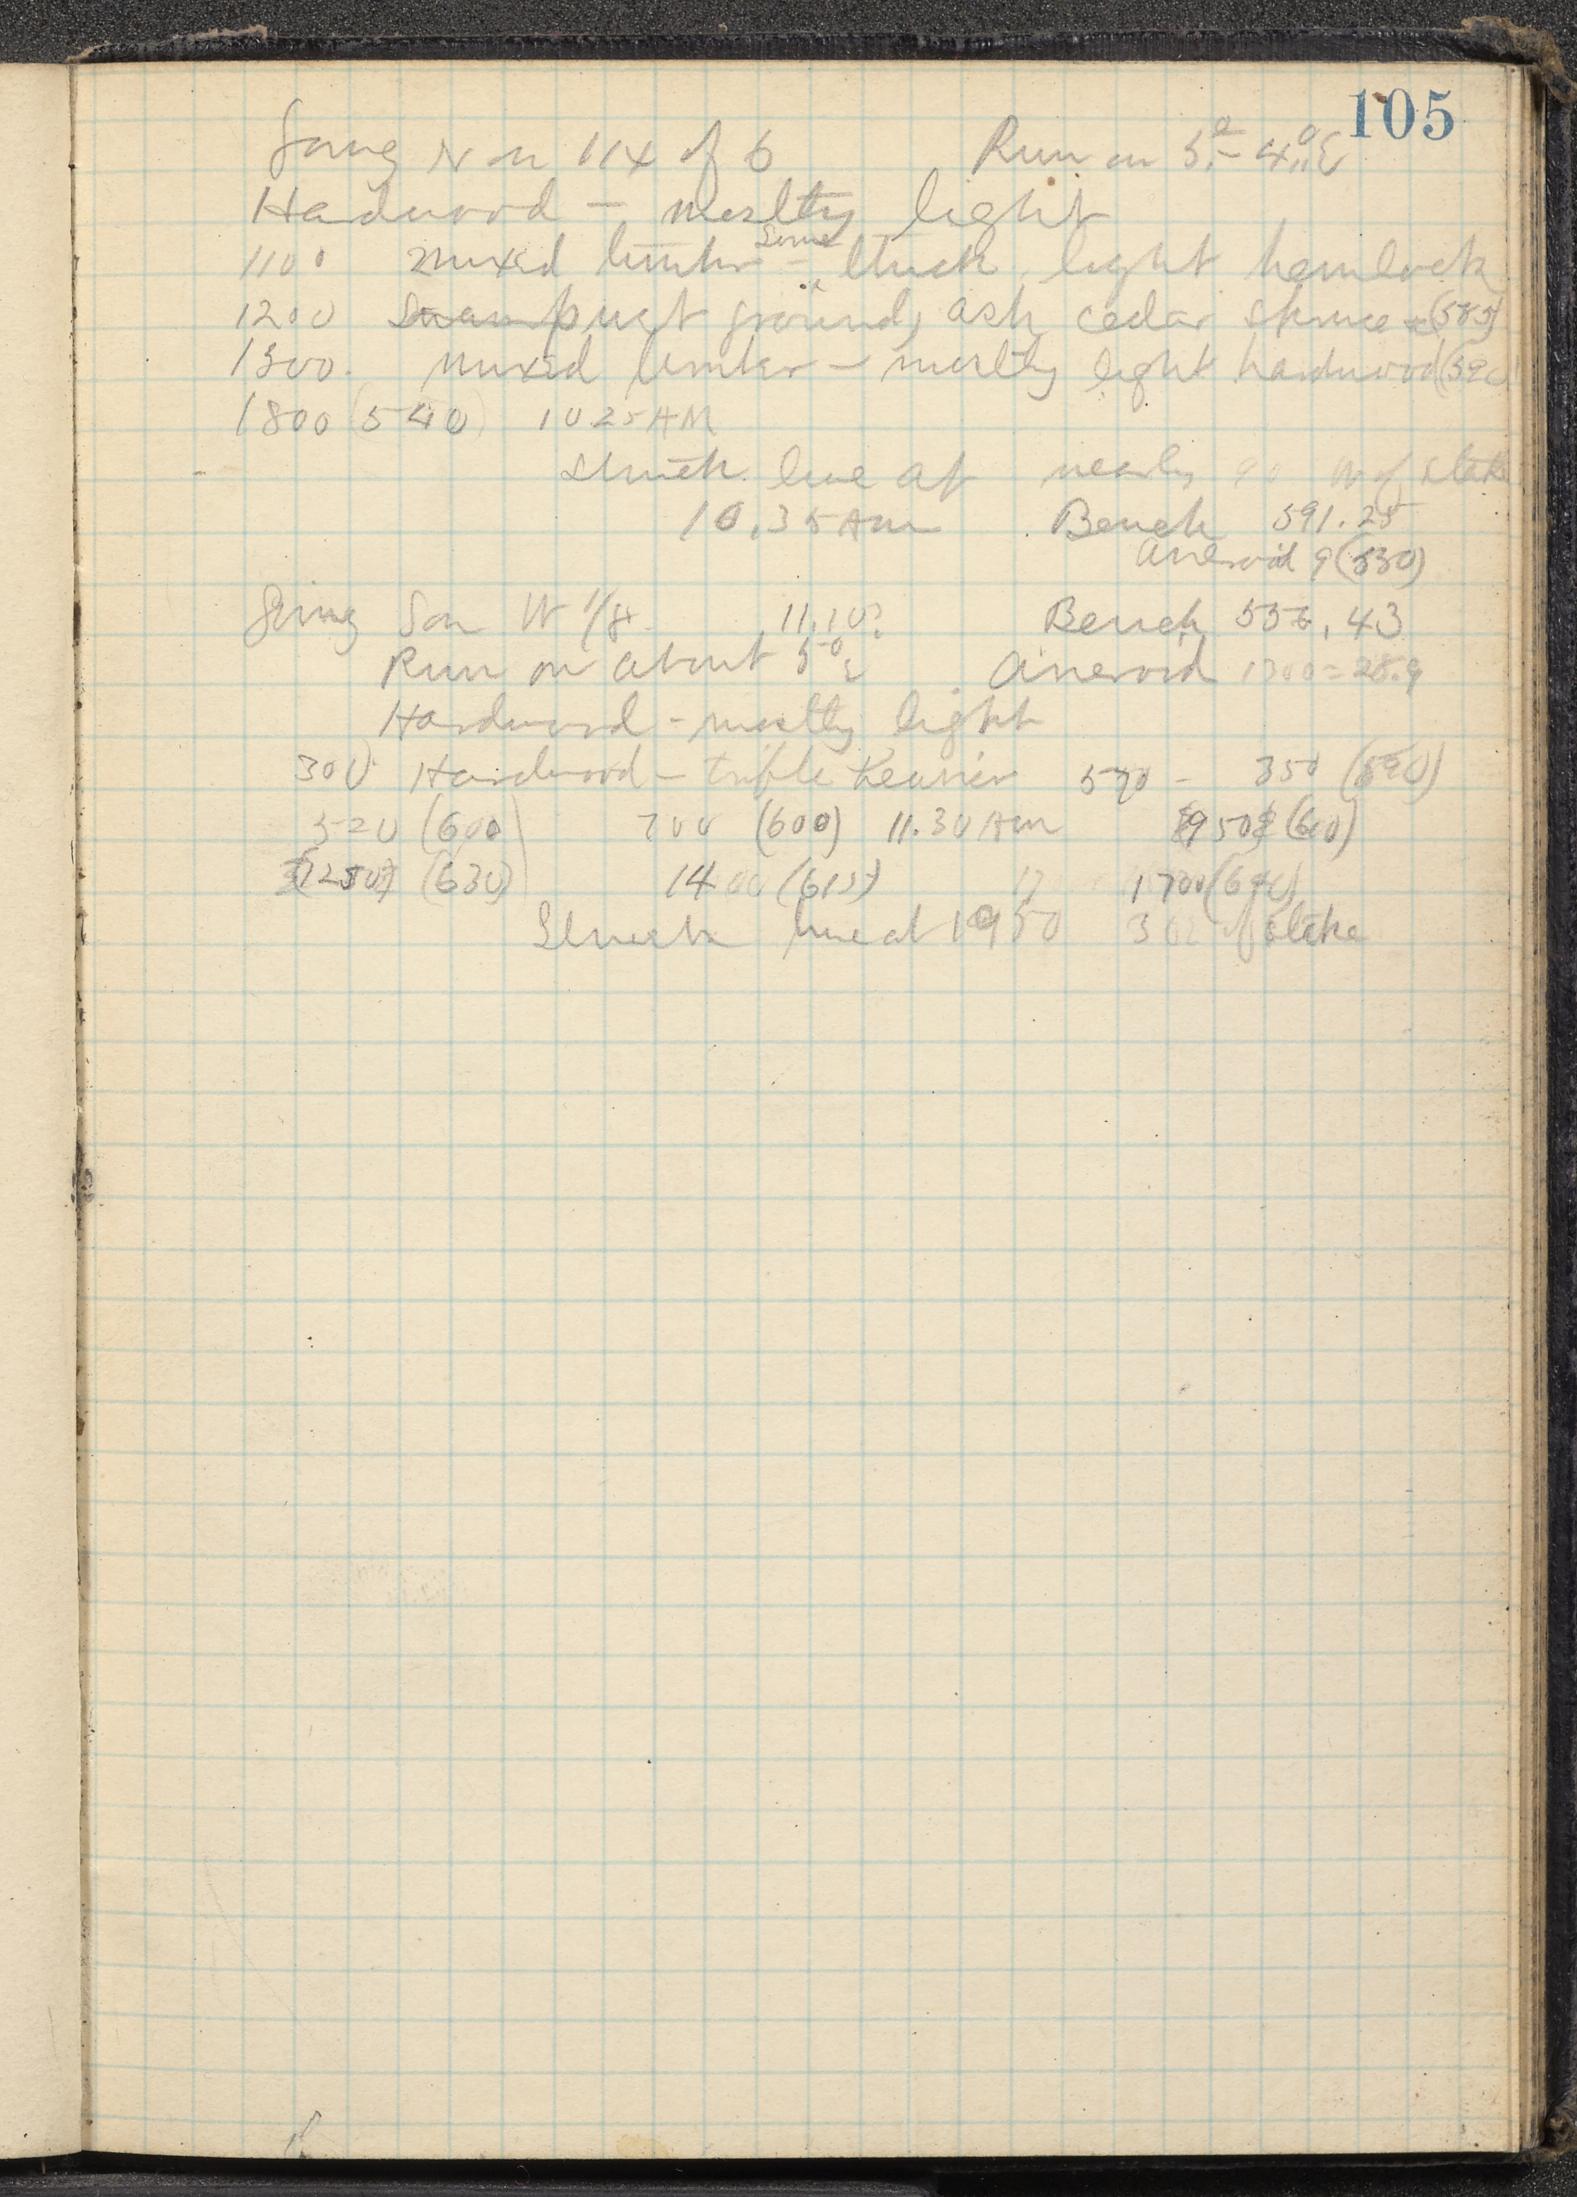 105
Going N on 1/4 of 6 Run on 3° - 4° E
Hardwood - mostly light
1100 mixed timber - Some thick, light hemlock
1200 Swamp wet ground, ash cedar spruce (585)
1300. mixed timber - mostly light hardwood (590)
1800 (540) 10 25 AM
Struck line at nearly 90 W of stake
10.35 Am Bench 591.25
Aneroid (530)
Going S on W 1/8 11.10? Bench 556.43
Run on about 5° E Aneroid 1300 = 28.9
Hardwood - mostly light
300 Hardwood - trifle heavier 570 - 350 (590)
520 (600) 700 (600) 11.30 Am 950 (610)
1250 (630) 1400 (615) 17 1700 (640)
Struck line at 1950 302 of stake